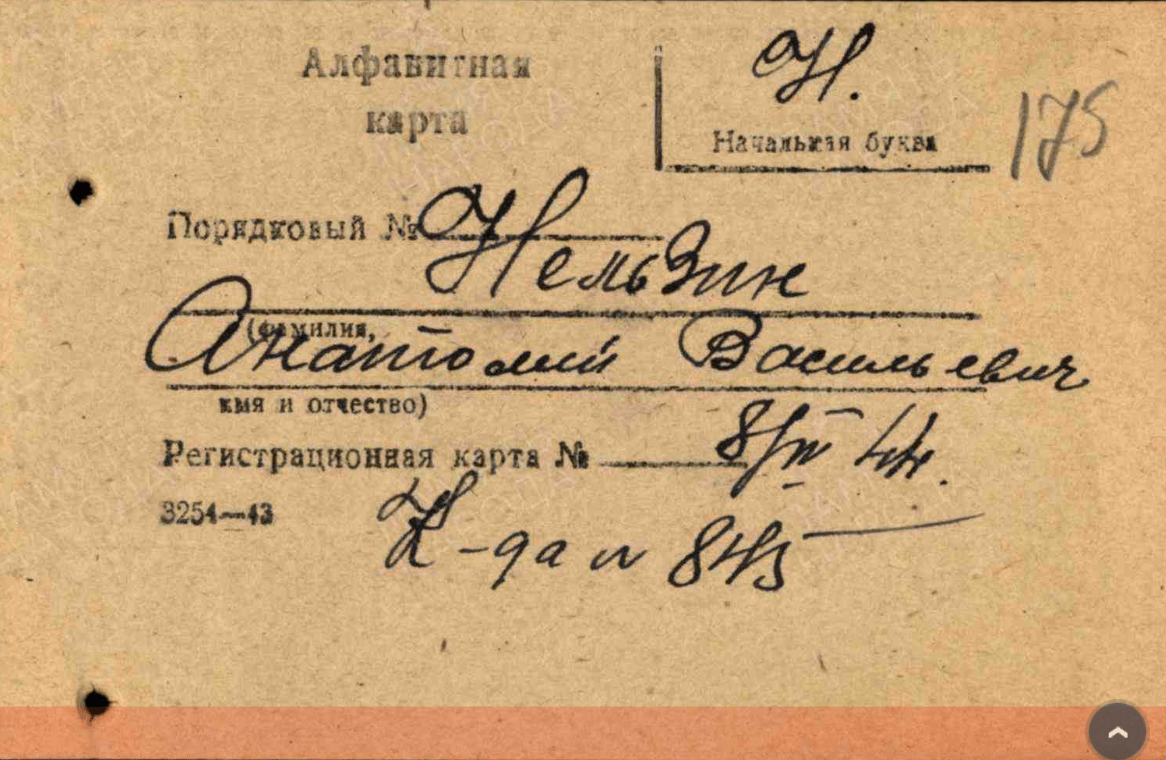 Алфавитная
карта
Н.
Начальная буква
175
Порядковый №
Нельзин
(фамилия,
Анатолий Васильевич
имя и отчество)
Регистрационная карта № 8/VII 44.
3254—43
К-да 845